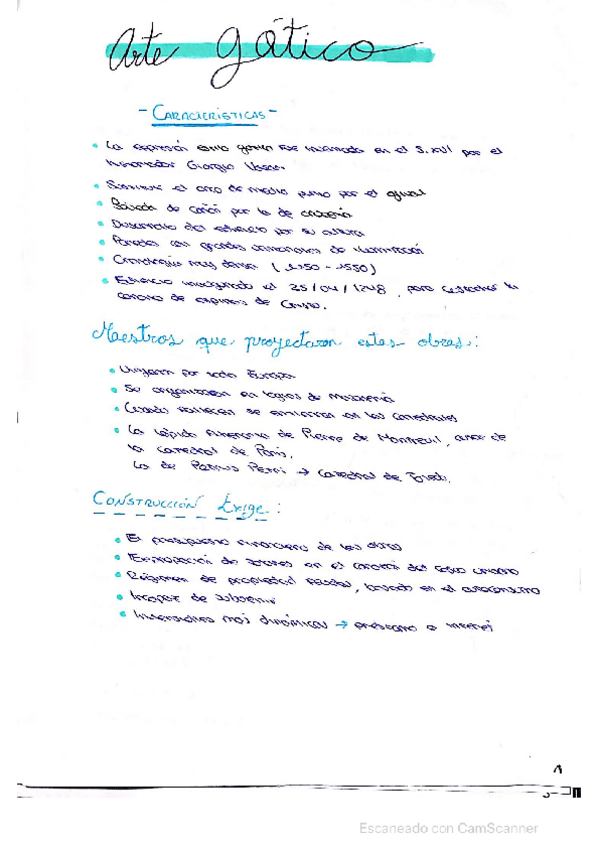 Arte gótico
- CARACTERÍSTICAS -
La expresión estilo gótico fue inventada en el S. XVI por el
historiador Giorgio Vasari.
Sustituir el arco de medio punto por el ojival
Bóveda de cañón por la de crucería
Desarrollo del edificio por su altura
Paredes con grandes de iluminación
Cronología muy densa (1150 - 1550)
Edificio inaugurado el 25/04/1248, para custodiar la
corona de espinas de Cristo.
Maestros que proyectaron estas obras:
Viajaron por toda Europa
Se organizaron en logias de masonería
Cuando fallecen se entierran en las catedrales
La lápida funeraria de Pierre de Montreuil, autor de
la catedral de París.
La de Petrus Petri → Catedral de Toledo.
CONSTRUCCIÓN Exige:
El presupuesto financiero de las obras
Expropiación de solares en el corazón del casco urbano
Régimen de propiedad feudal, basado en el autoconsumo
Incapaz de subvenir
más dinámicas → préstamo a interés
1
Escaneado con CamScanner